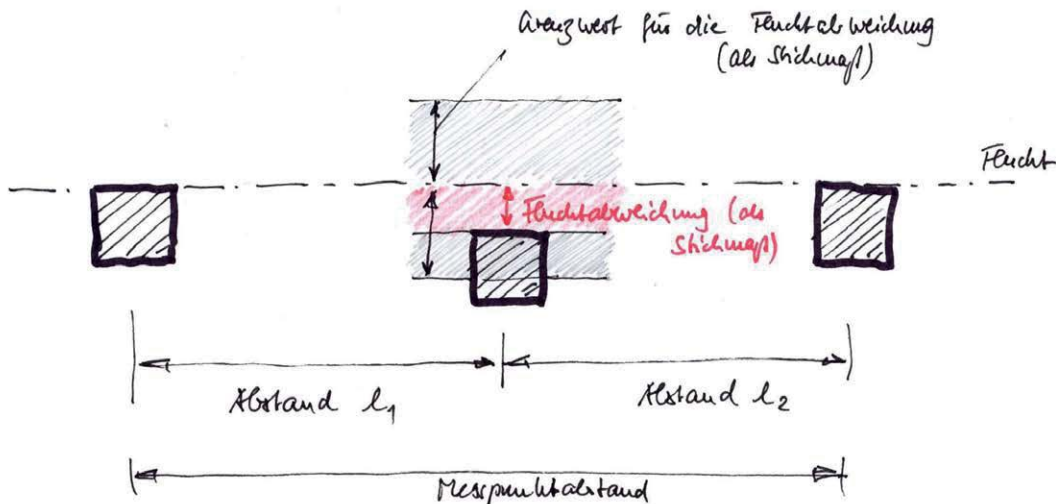 Grenzwert für die Fluchtabweichung
(als Stichmaß)
Flucht
Fluchtabweichung (als
Stichmaß)
Abstand l₁
Abstand l₂
Messpunktabstand